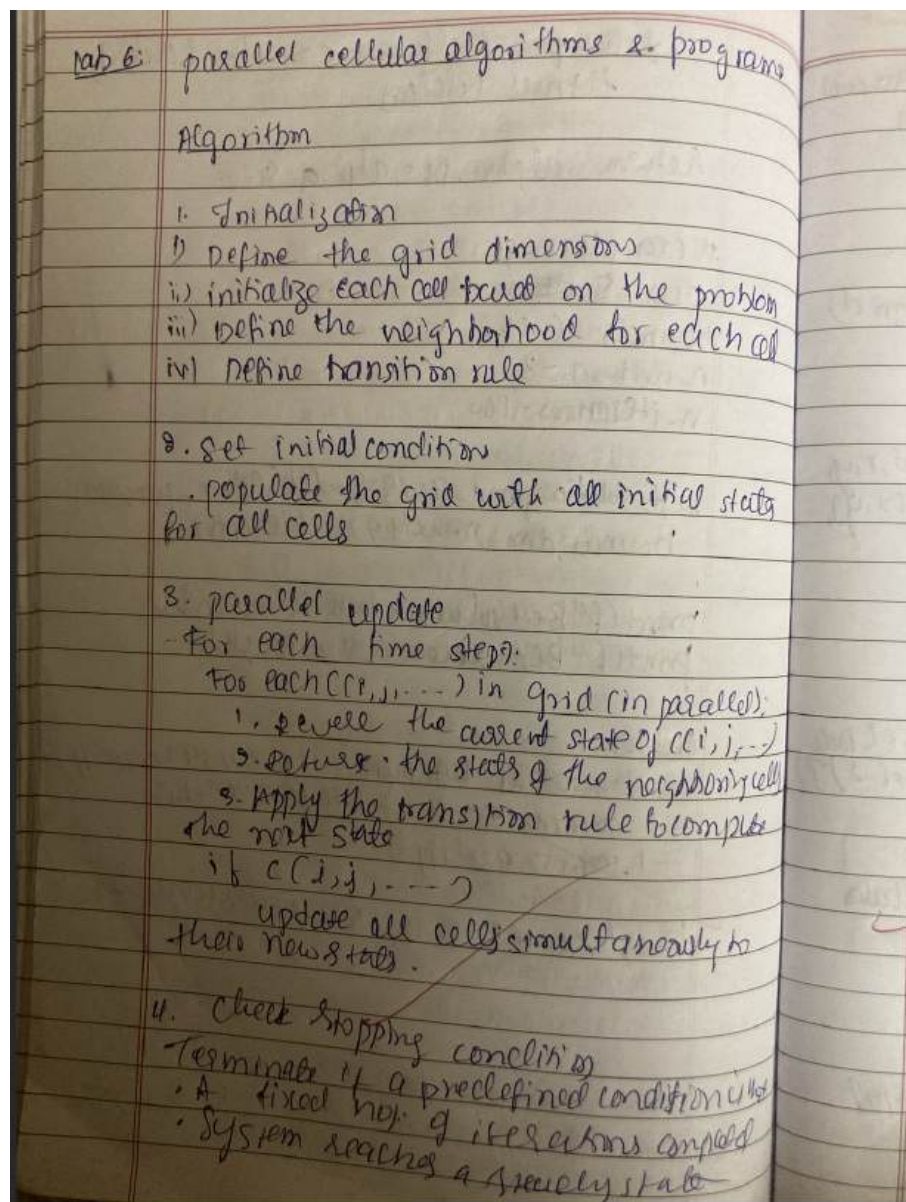 Lab 6: parallel cellular algorithms & programs
Algorithm
1. Initialization
i) Define the grid dimensions
ii) initialize each cell based on the problem
iii) Define the neighborhood for each cell
iv) Define transition rule
2. Set initial condition
. populate the grid with all initial states
for all cells
3. parallel update
- For each time step:
For each C(i,j,...) in grid (in parallel):
1. the current state of C(i,j,...)
2. the states of the neighboring cell
3. Apply the transition rule to compute
the next state
if C(i,j,----)
update all cells simultaneously to
their new states.
4. Check stopping condition
Terminate if a predefined condition is met
. A fixed no. of iterations completed
. System reaches a steady state